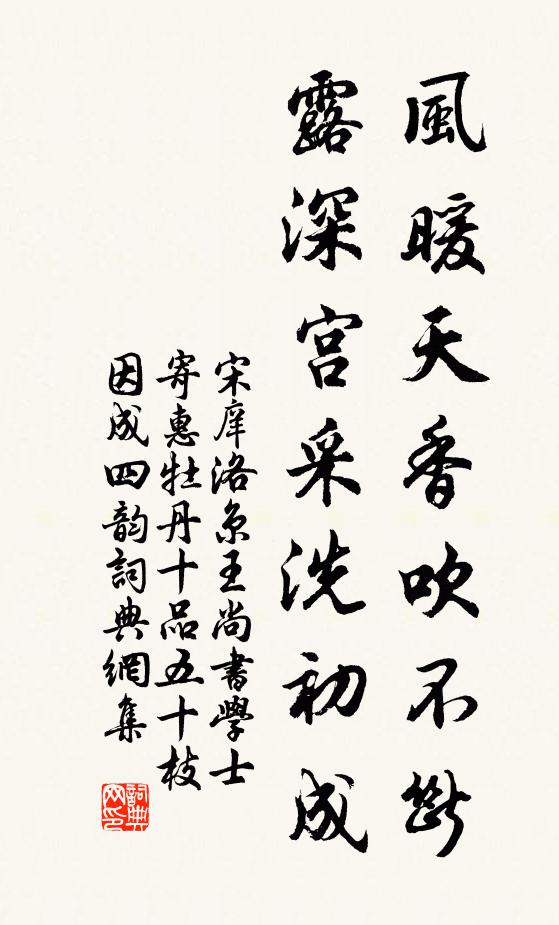 風暖天香吹不斷
露深宫采洗初成
宋庠洛京王尚書學士
寄惠牡丹十品五十枝
因成四韵詞典網集
詞典网印